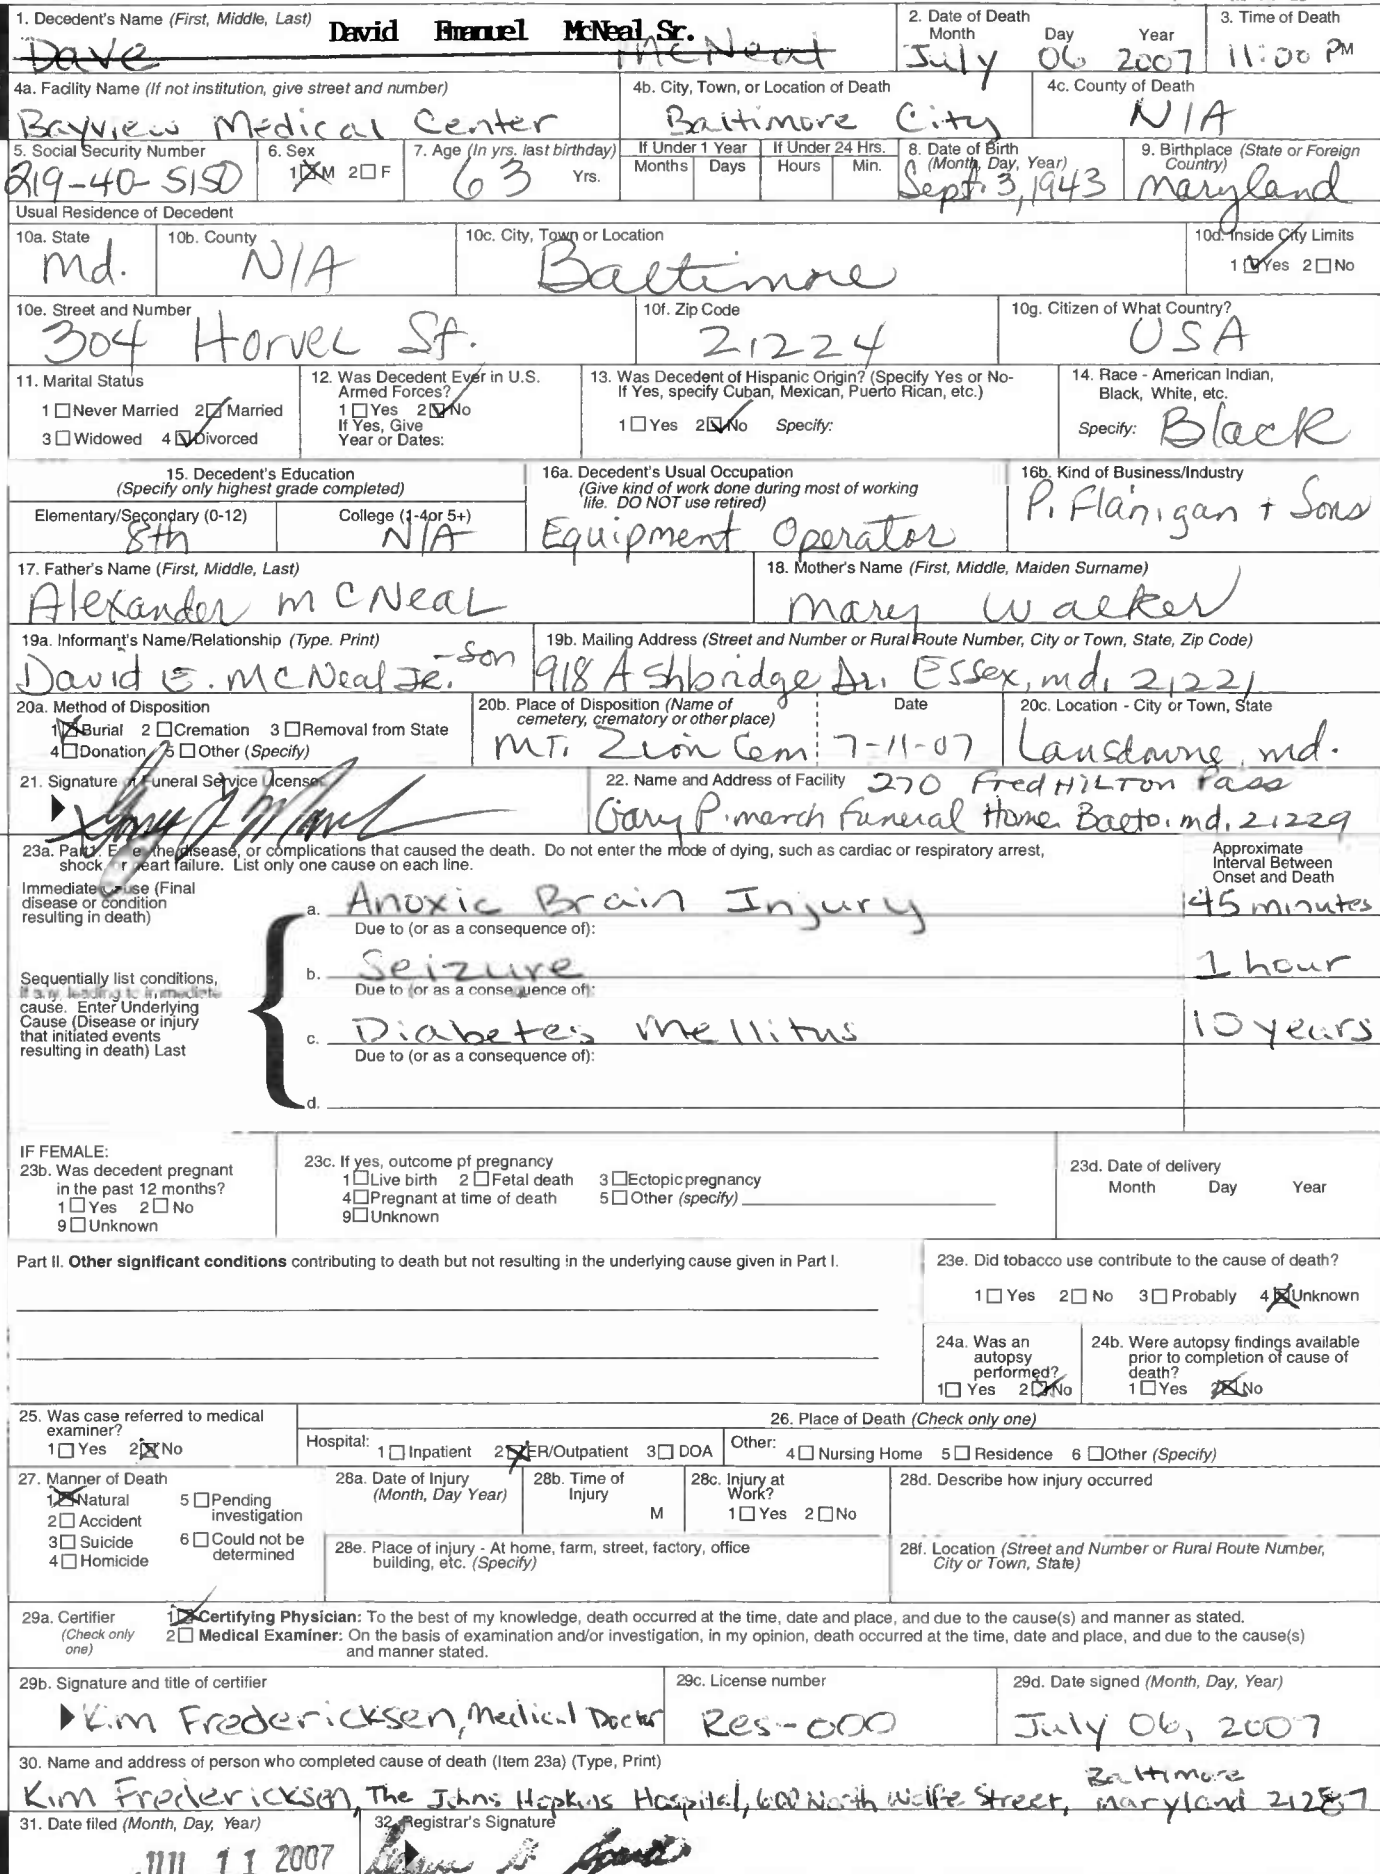 1. Decedent's Name (First, Middle, Last) David Emanuel McNeal Sr.
Dave McNeal
2. Date of Death
Month Day Year
July 06 2007
3. Time of Death
11:00 PM
4a. Facility Name (If not institution, give street and number)
Bayview Medical Center
4b. City, Town, or Location of Death
Baltimore City
4c. County of Death
N/A
5. Social Security Number
219-40-5150
6. Sex
1☒M 2☐F
7. Age (In yrs. last birthday)
63 Yrs.
If Under 1 Year
Months Days
If Under 24 Hrs.
Hours Min.
8. Date of Birth
(Month, Day, Year)
Sept. 3, 1943
9. Birthplace (State or Foreign
Country)
Maryland
Usual Residence of Decedent
10a. State
Md.
10b. County
N/A
10c. City, Town or Location
Baltimore
10d. Inside City Limits
1☑Yes 2☐No
10e. Street and Number
304 Horvel St.
10f. Zip Code
21224
10g. Citizen of What Country?
USA
11. Marital Status
1☐Never Married 2☑Married
3☐Widowed 4☑Divorced
12. Was Decedent Ever in U.S.
Armed Forces?
1☐Yes 2☑No
If Yes, Give
Year or Dates:
13. Was Decedent of Hispanic Origin? (Specify Yes or No-
If Yes, specify Cuban, Mexican, Puerto Rican, etc.)
1☐Yes 2☑No Specify:
14. Race - American Indian,
Black, White, etc.
Specify: Black
15. Decedent's Education
(Specify only highest grade completed)
Elementary/Secondary (0-12) College (1-4or 5+)
8th N/A
16a. Decedent's Usual Occupation
(Give kind of work done during most of working
life. DO NOT use retired)
Equipment Operator
16b. Kind of Business/Industry
P. Flanigan + Sons
17. Father's Name (First, Middle, Last)
Alexander McNeal
18. Mother's Name (First, Middle, Maiden Surname)
Mary Walker
19a. Informant's Name/Relationship (Type. Print)
David E. McNeal Jr. - Son
19b. Mailing Address (Street and Number or Rural Route Number, City or Town, State, Zip Code)
918 Ashbridge Dr. Essex, md. 21221
20a. Method of Disposition
1☒Burial 2☐Cremation 3☐Removal from State
4☐Donation 5☐Other (Specify)
20b. Place of Disposition (Name of
cemetery, crematory or other place)
MT. Zion Cem
Date
7-11-07
20c. Location - City or Town, State
Lansdowne, md.
21. Signature of Funeral Service Licensee
22. Name and Address of Facility 270 Fred HILTON Pass
Gary P. march Funeral Home Balto. md. 21229
23a. Part I. Enter the disease, or complications that caused the death. Do not enter the mode of dying, such as cardiac or respiratory arrest,
shock or heart failure. List only one cause on each line.
Approximate
Interval Between
Onset and Death
Immediate Cause (Final
disease or condition
resulting in death)
a. Anoxic Brain Injury 45 minutes
Due to (or as a consequence of):
b. Seizure 1 hour
Due to (or as a consequence of):
Sequentially list conditions,
if any, leading to immediate
cause. Enter Underlying
Cause (Disease or injury
that initiated events
resulting in death) Last
c. Diabetes Mellitus 10 years
Due to (or as a consequence of):
d.
IF FEMALE:
23b. Was decedent pregnant
in the past 12 months?
1☐Yes 2☐No
9☐Unknown
23c. If yes, outcome pf pregnancy
1☐Live birth 2☐Fetal death 3☐Ectopic pregnancy
4☐Pregnant at time of death 5☐Other (specify)
9☐Unknown
23d. Date of delivery
Month Day Year
Part II. Other significant conditions contributing to death but not resulting in the underlying cause given in Part I.
23e. Did tobacco use contribute to the cause of death?
1☐Yes 2☐No 3☐Probably 4☒Unknown
24a. Was an
autopsy
performed?
1☐Yes 2☒No
24b. Were autopsy findings available
prior to completion of cause of
death?
1☐Yes 2☒No
25. Was case referred to medical
examiner?
1☐Yes 2☒No
26. Place of Death (Check only one)
Hospital: 1☐Inpatient 2☒ER/Outpatient 3☐DOA Other: 4☐Nursing Home 5☐Residence 6☐Other (Specify)
27. Manner of Death
1☒Natural 5☐Pending
investigation
2☐Accident
3☐Suicide 6☐Could not be
determined
4☐Homicide
28a. Date of Injury
(Month, Day Year)
28b. Time of
Injury
M
28c. Injury at
Work?
1☐Yes 2☐No
28d. Describe how injury occurred
28e. Place of injury - At home, farm, street, factory, office
building, etc. (Specify)
28f. Location (Street and Number or Rural Route Number,
City or Town, State)
29a. Certifier
(Check only
one)
1☒Certifying Physician: To the best of my knowledge, death occurred at the time, date and place, and due to the cause(s) and manner as stated.
2☐Medical Examiner: On the basis of examination and/or investigation, in my opinion, death occurred at the time, date and place, and due to the cause(s)
and manner stated.
29b. Signature and title of certifier
Kim Fredericksen, Medical Doctor
29c. License number
Res-000
29d. Date signed (Month, Day, Year)
July 06, 2007
30. Name and address of person who completed cause of death (Item 23a) (Type, Print)
Kim Fredericksen, The Johns Hopkins Hospital, 600 North Wolfe Street, Baltimore Maryland 21287
31. Date filed (Month, Day, Year)
JUL 11 2007
32. Registrar's Signature